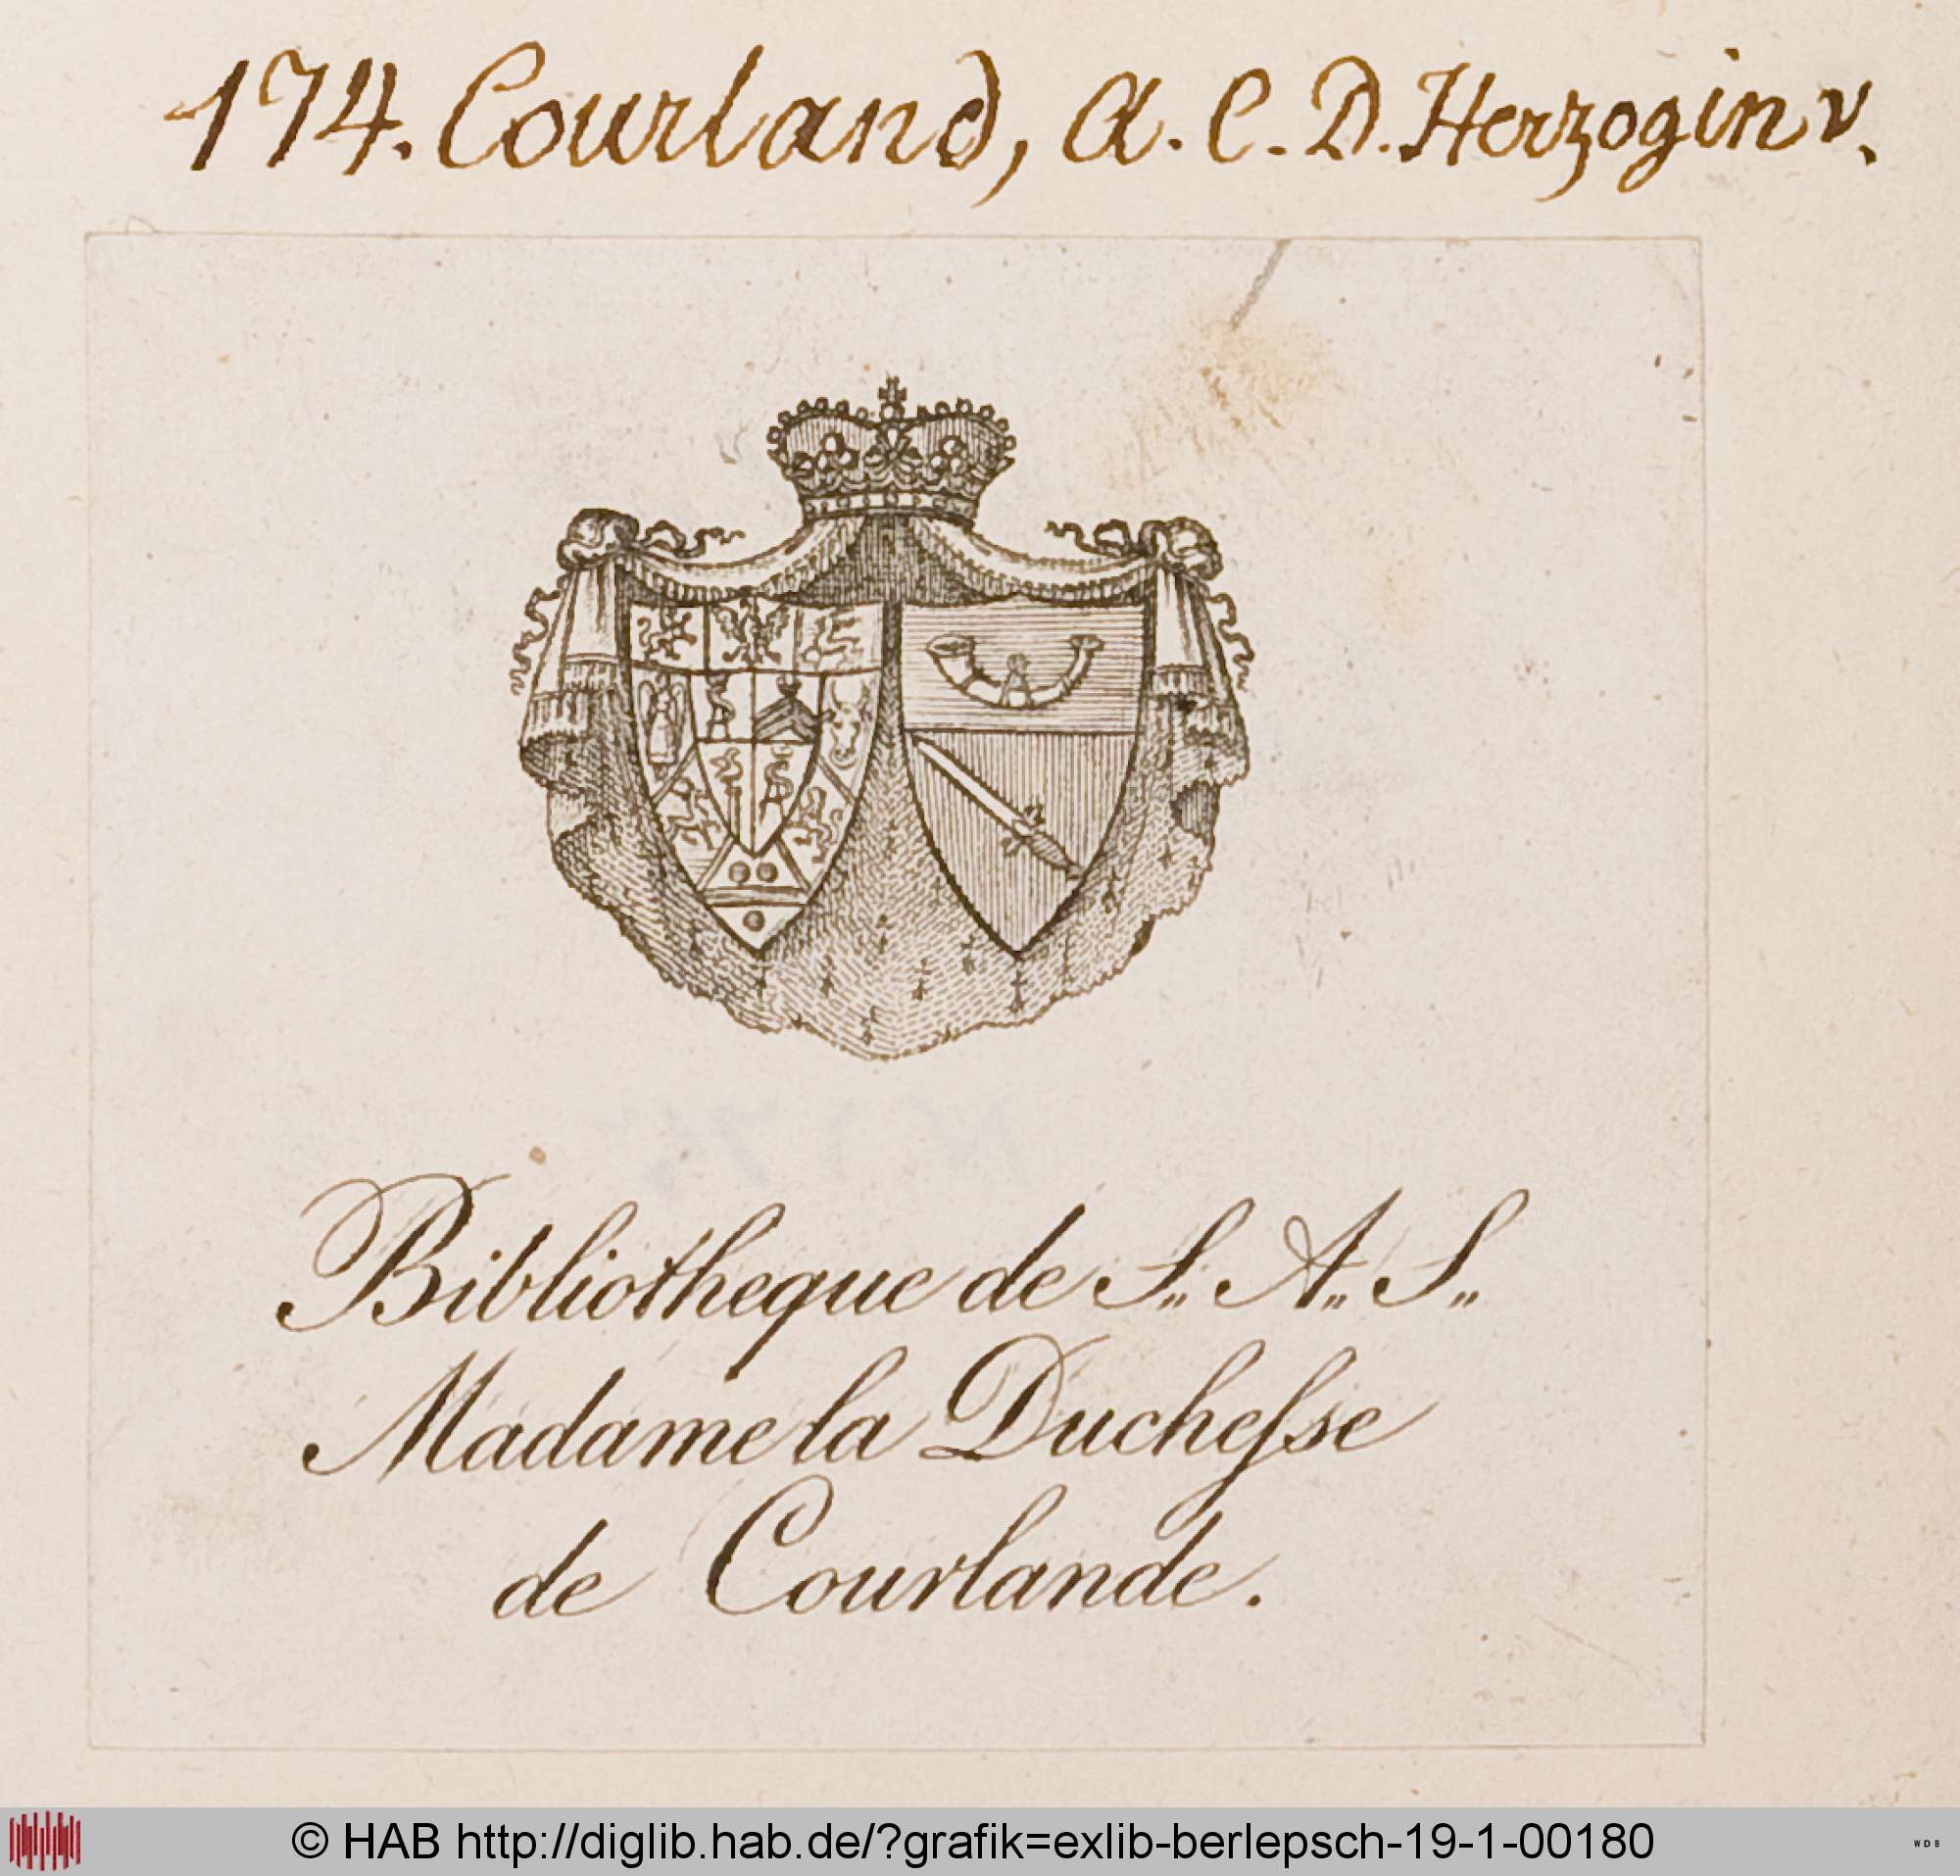 174. Courland, A. C. D. Herzogin v.
Bibliotheque de S„ A„ S„
Madame la Ducheſse
de Courlande.
© HAB http://diglib.hab.de/?grafik=exlib-berlepsch-19-1-00180
WDB